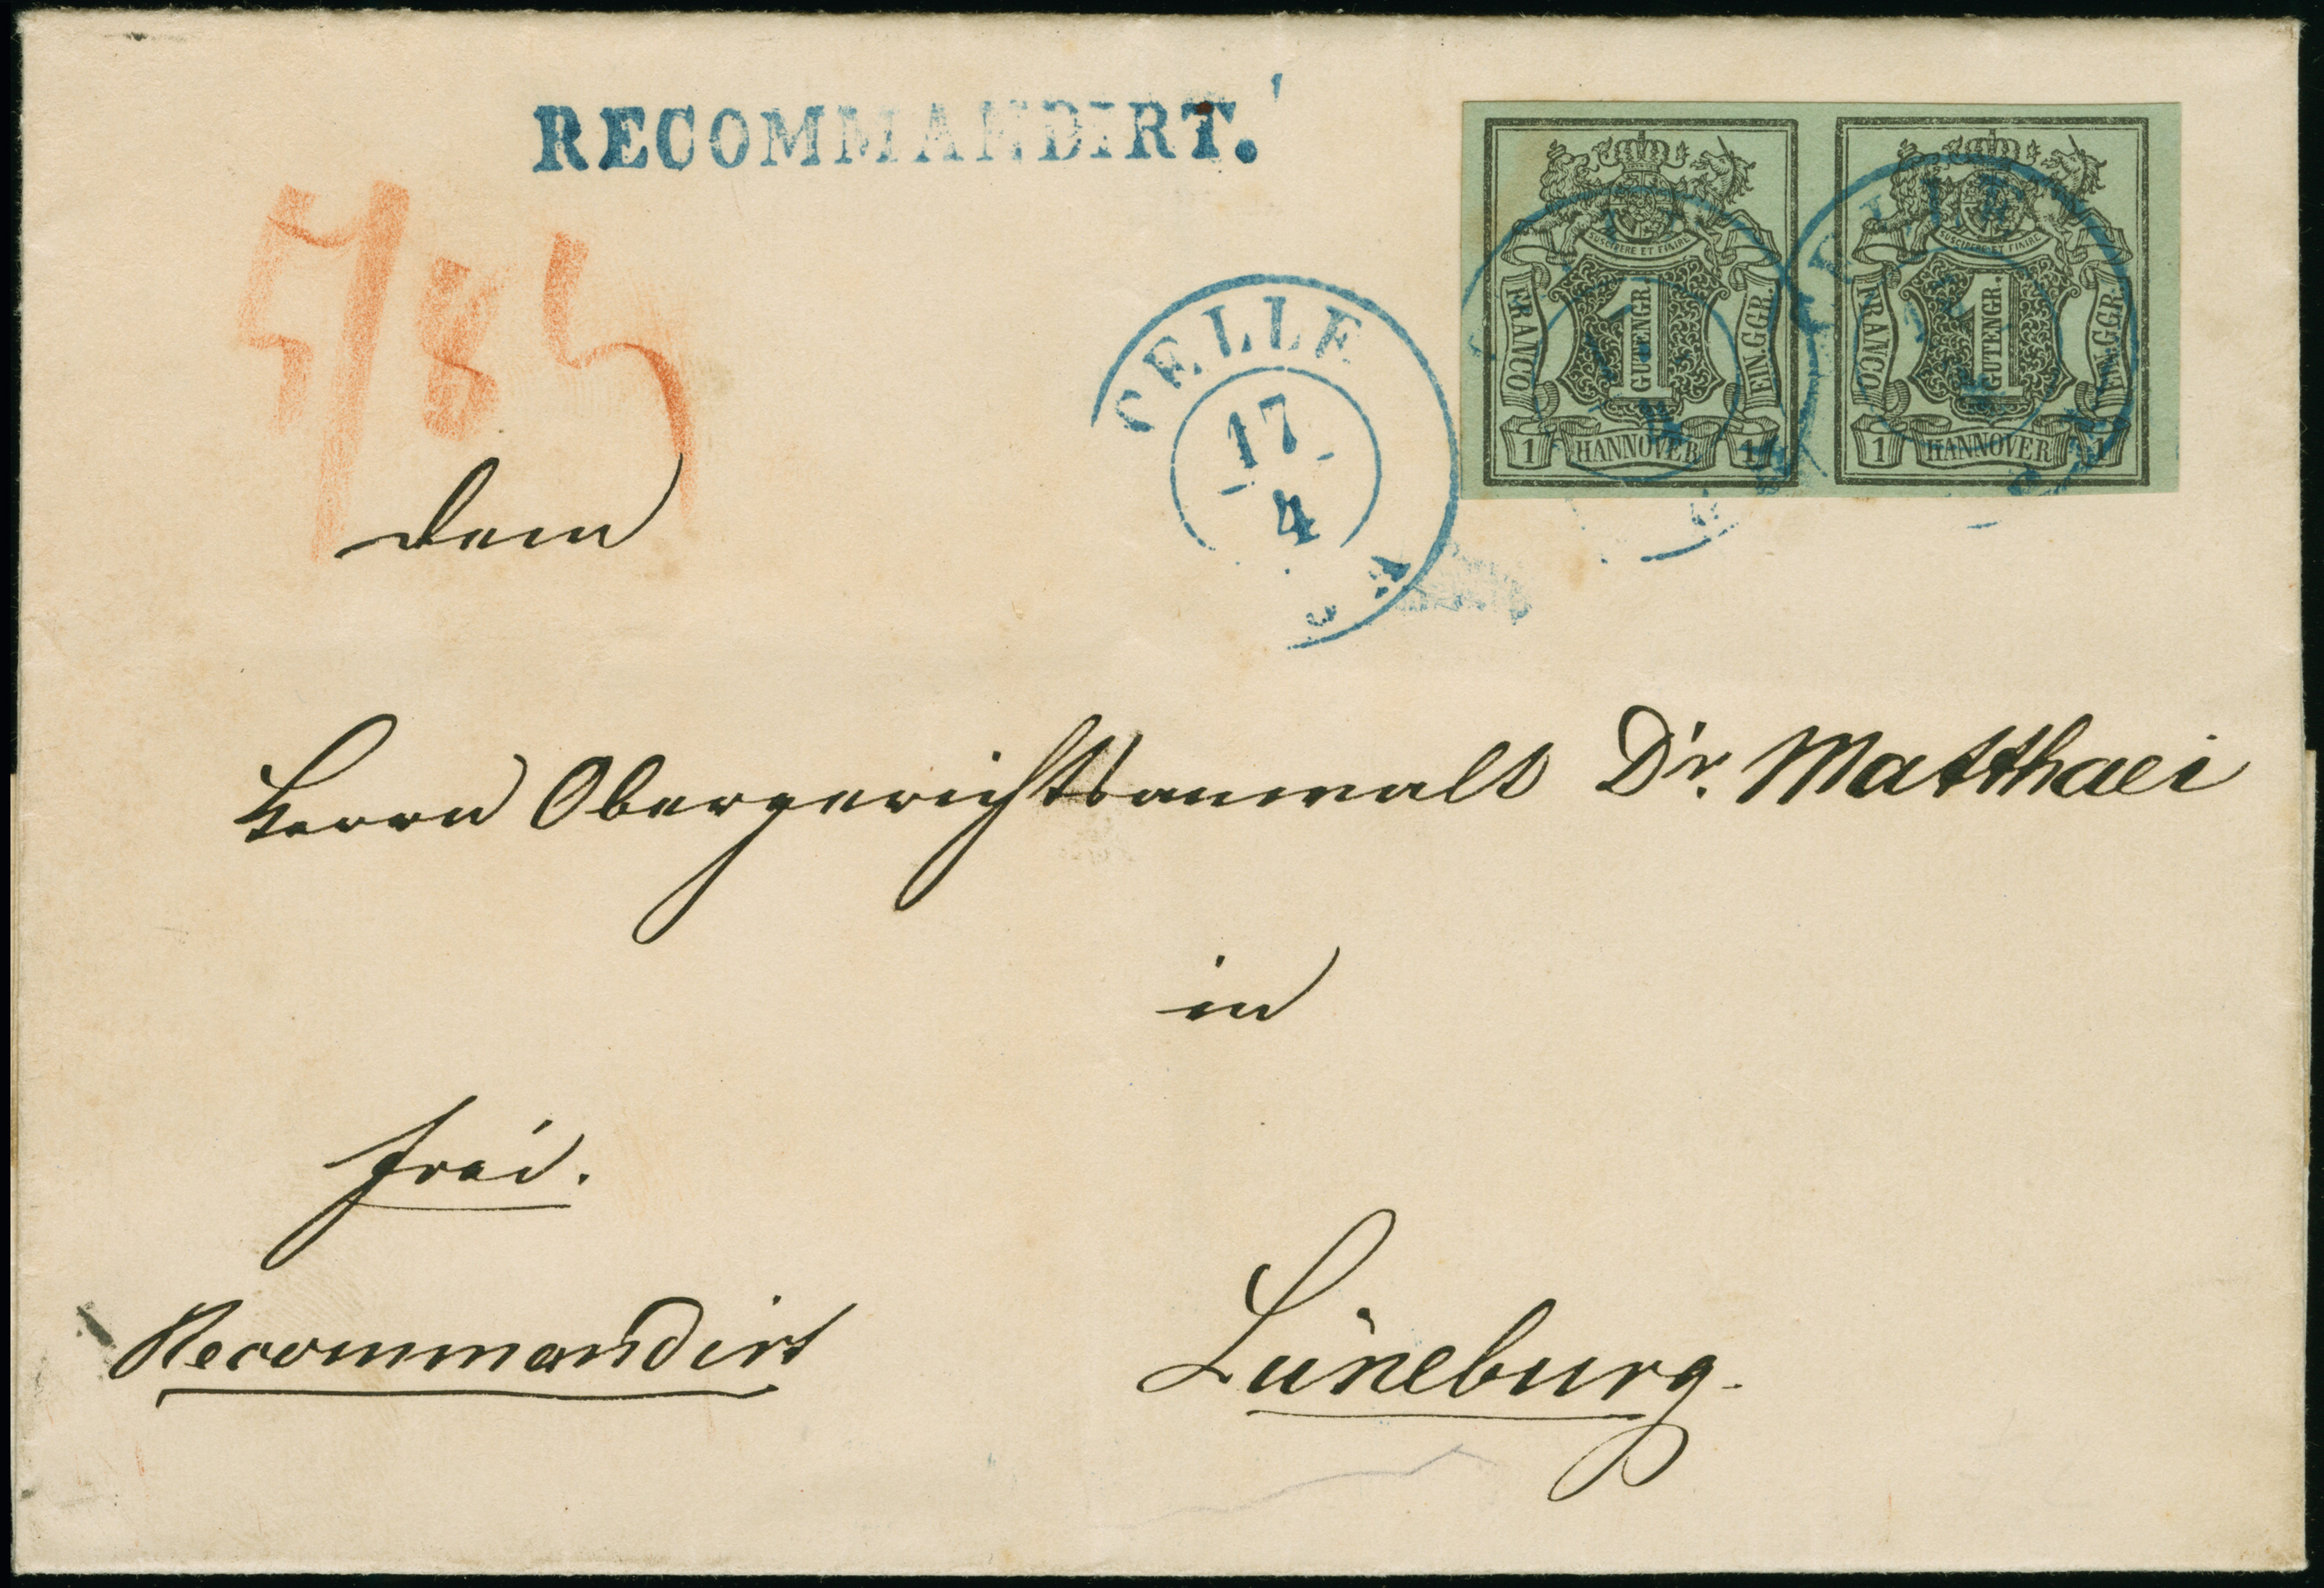 RECOMMANDIRT.
SUSCIPERE ET FINIRE
FRANCO
1 GUTENGR.
EIN.GGR.
1 HANNOVER 1
SUSCIPERE ET FINIRE
FRANCO
1 GUTENGR.
EIN.GGR.
1 HANNOVER 1
CELLE
17
4
CELLE
dem
Herrn Obergerichtsanwalt Dr. Matthaei
in
frei.
Recommandirt
Lüneburg.